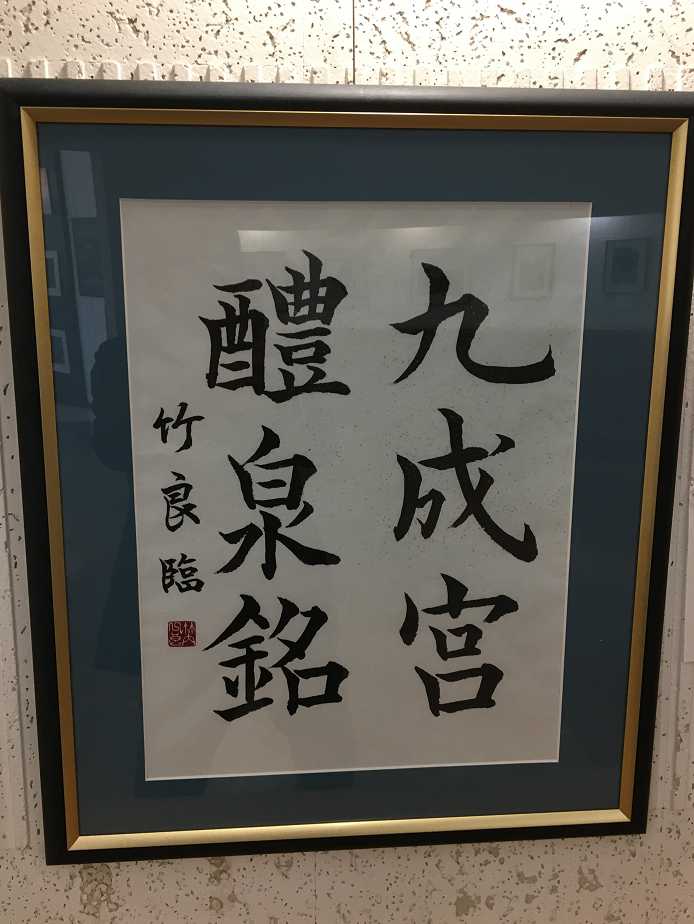 九成宮
醴泉銘
竹良臨